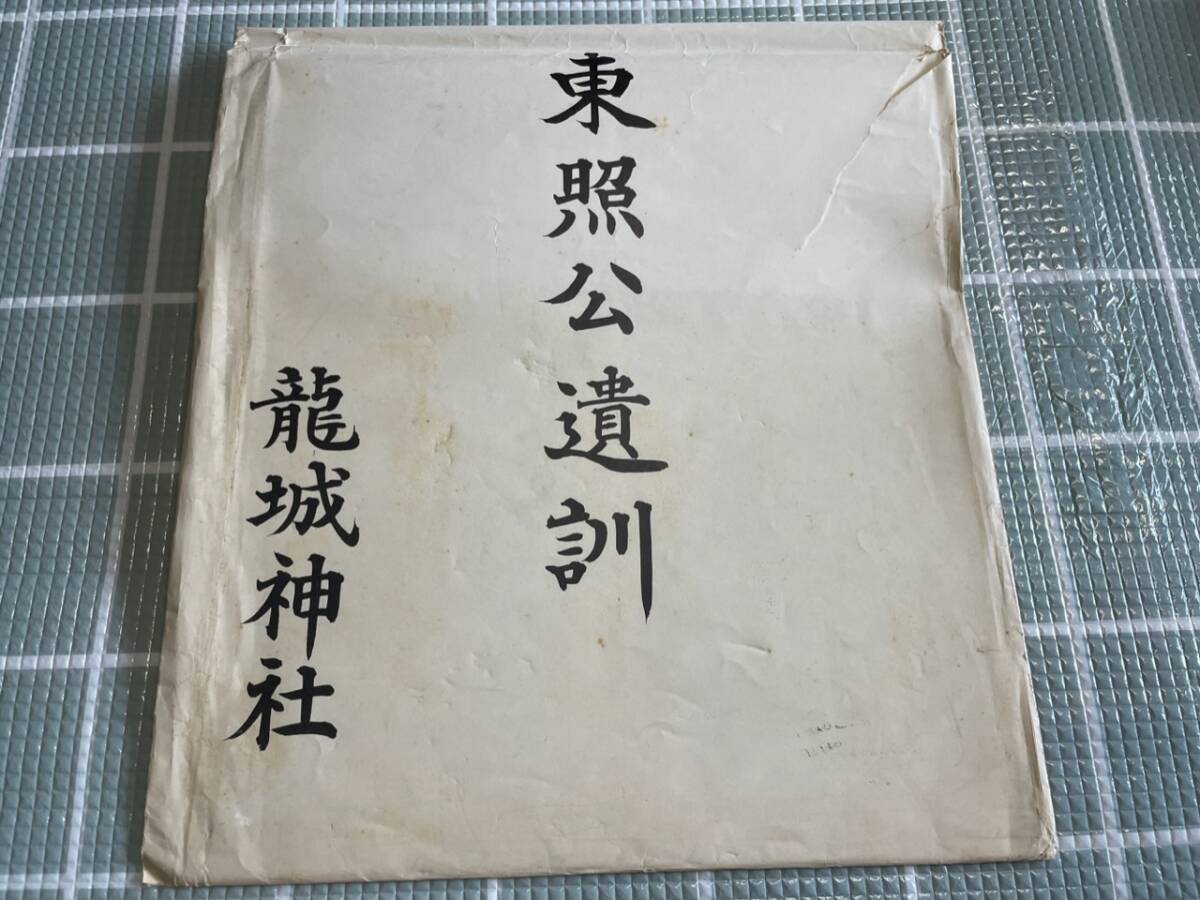 東照公遺訓
龍城神社